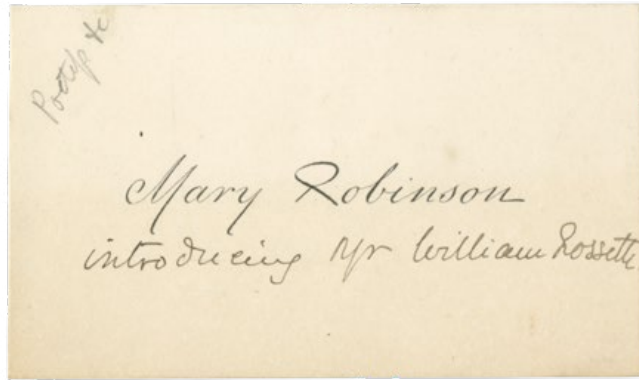 Mary Robinson
introducing Mr William Rossetti